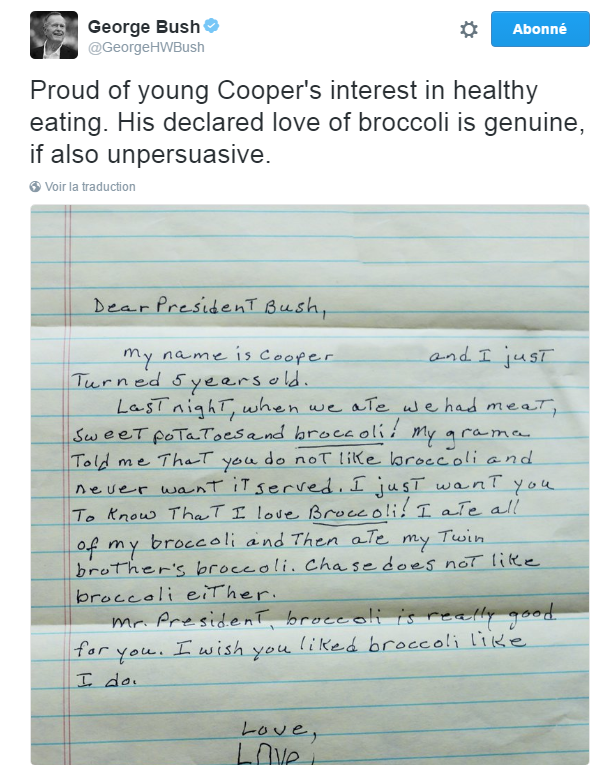 George Bush
@GeorgeHWBush
Abonné
Proud of young Cooper's interest in healthy
eating. His declared love of broccoli is genuine,
if also unpersuasive.
Voir la traduction
Dear President Bush,
my name is Cooper and I just
Turned 5 years old.
Last night, when we ate we had meat,
sweet potatoes and broccoli! My grama
Told me That you do not like broccoli and
never want it served. I just want you
To Know That I love Broccoli! I ate all
of my broccoli and Then ate my Twin
brother's broccoli. Chase does not like
broccoli either.
Mr. President, broccoli is really good
for you. I wish you liked broccoli like
I do.
Love,
LOVE,